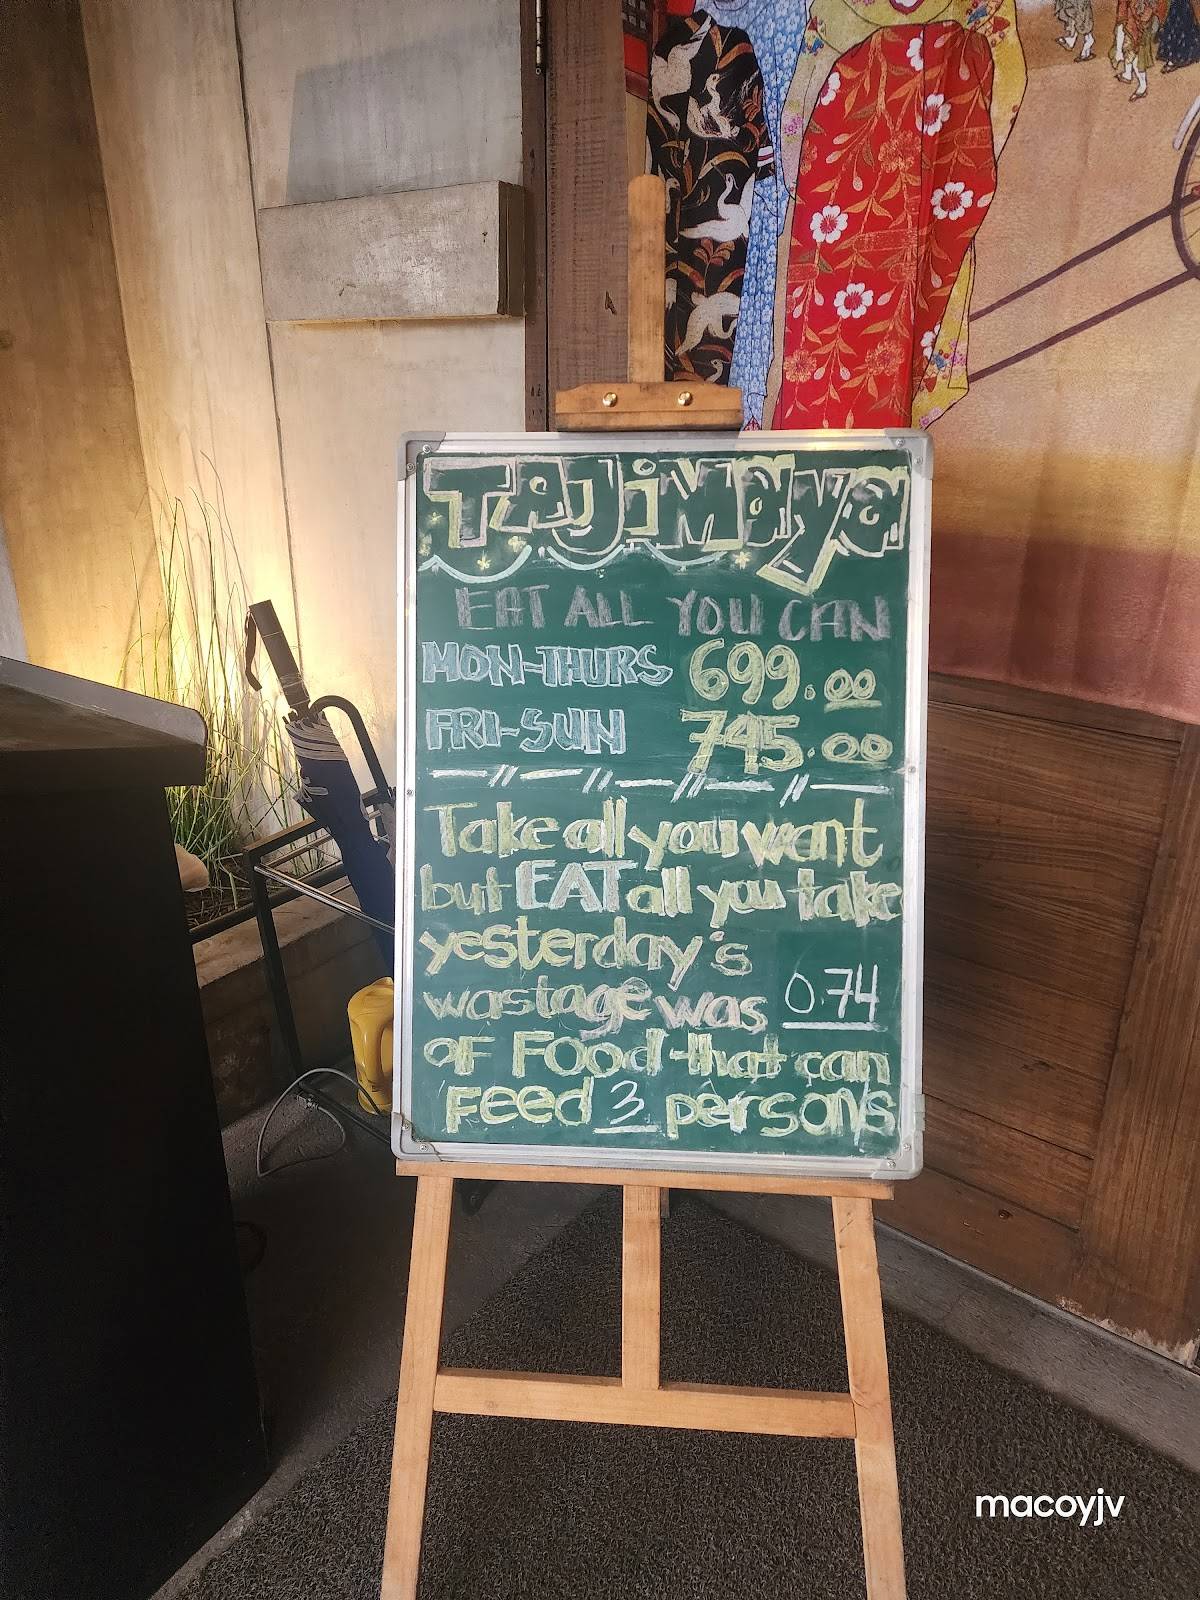 TAJiMaya
EAT ALL YOU CAN
MON-THURS 699.00
FRI-SUN 745.00
Take all you want
but EAT all you take
yesterday's
wastage was 0.74
OF FOOd that can
FEED 3 persons
macoyjv